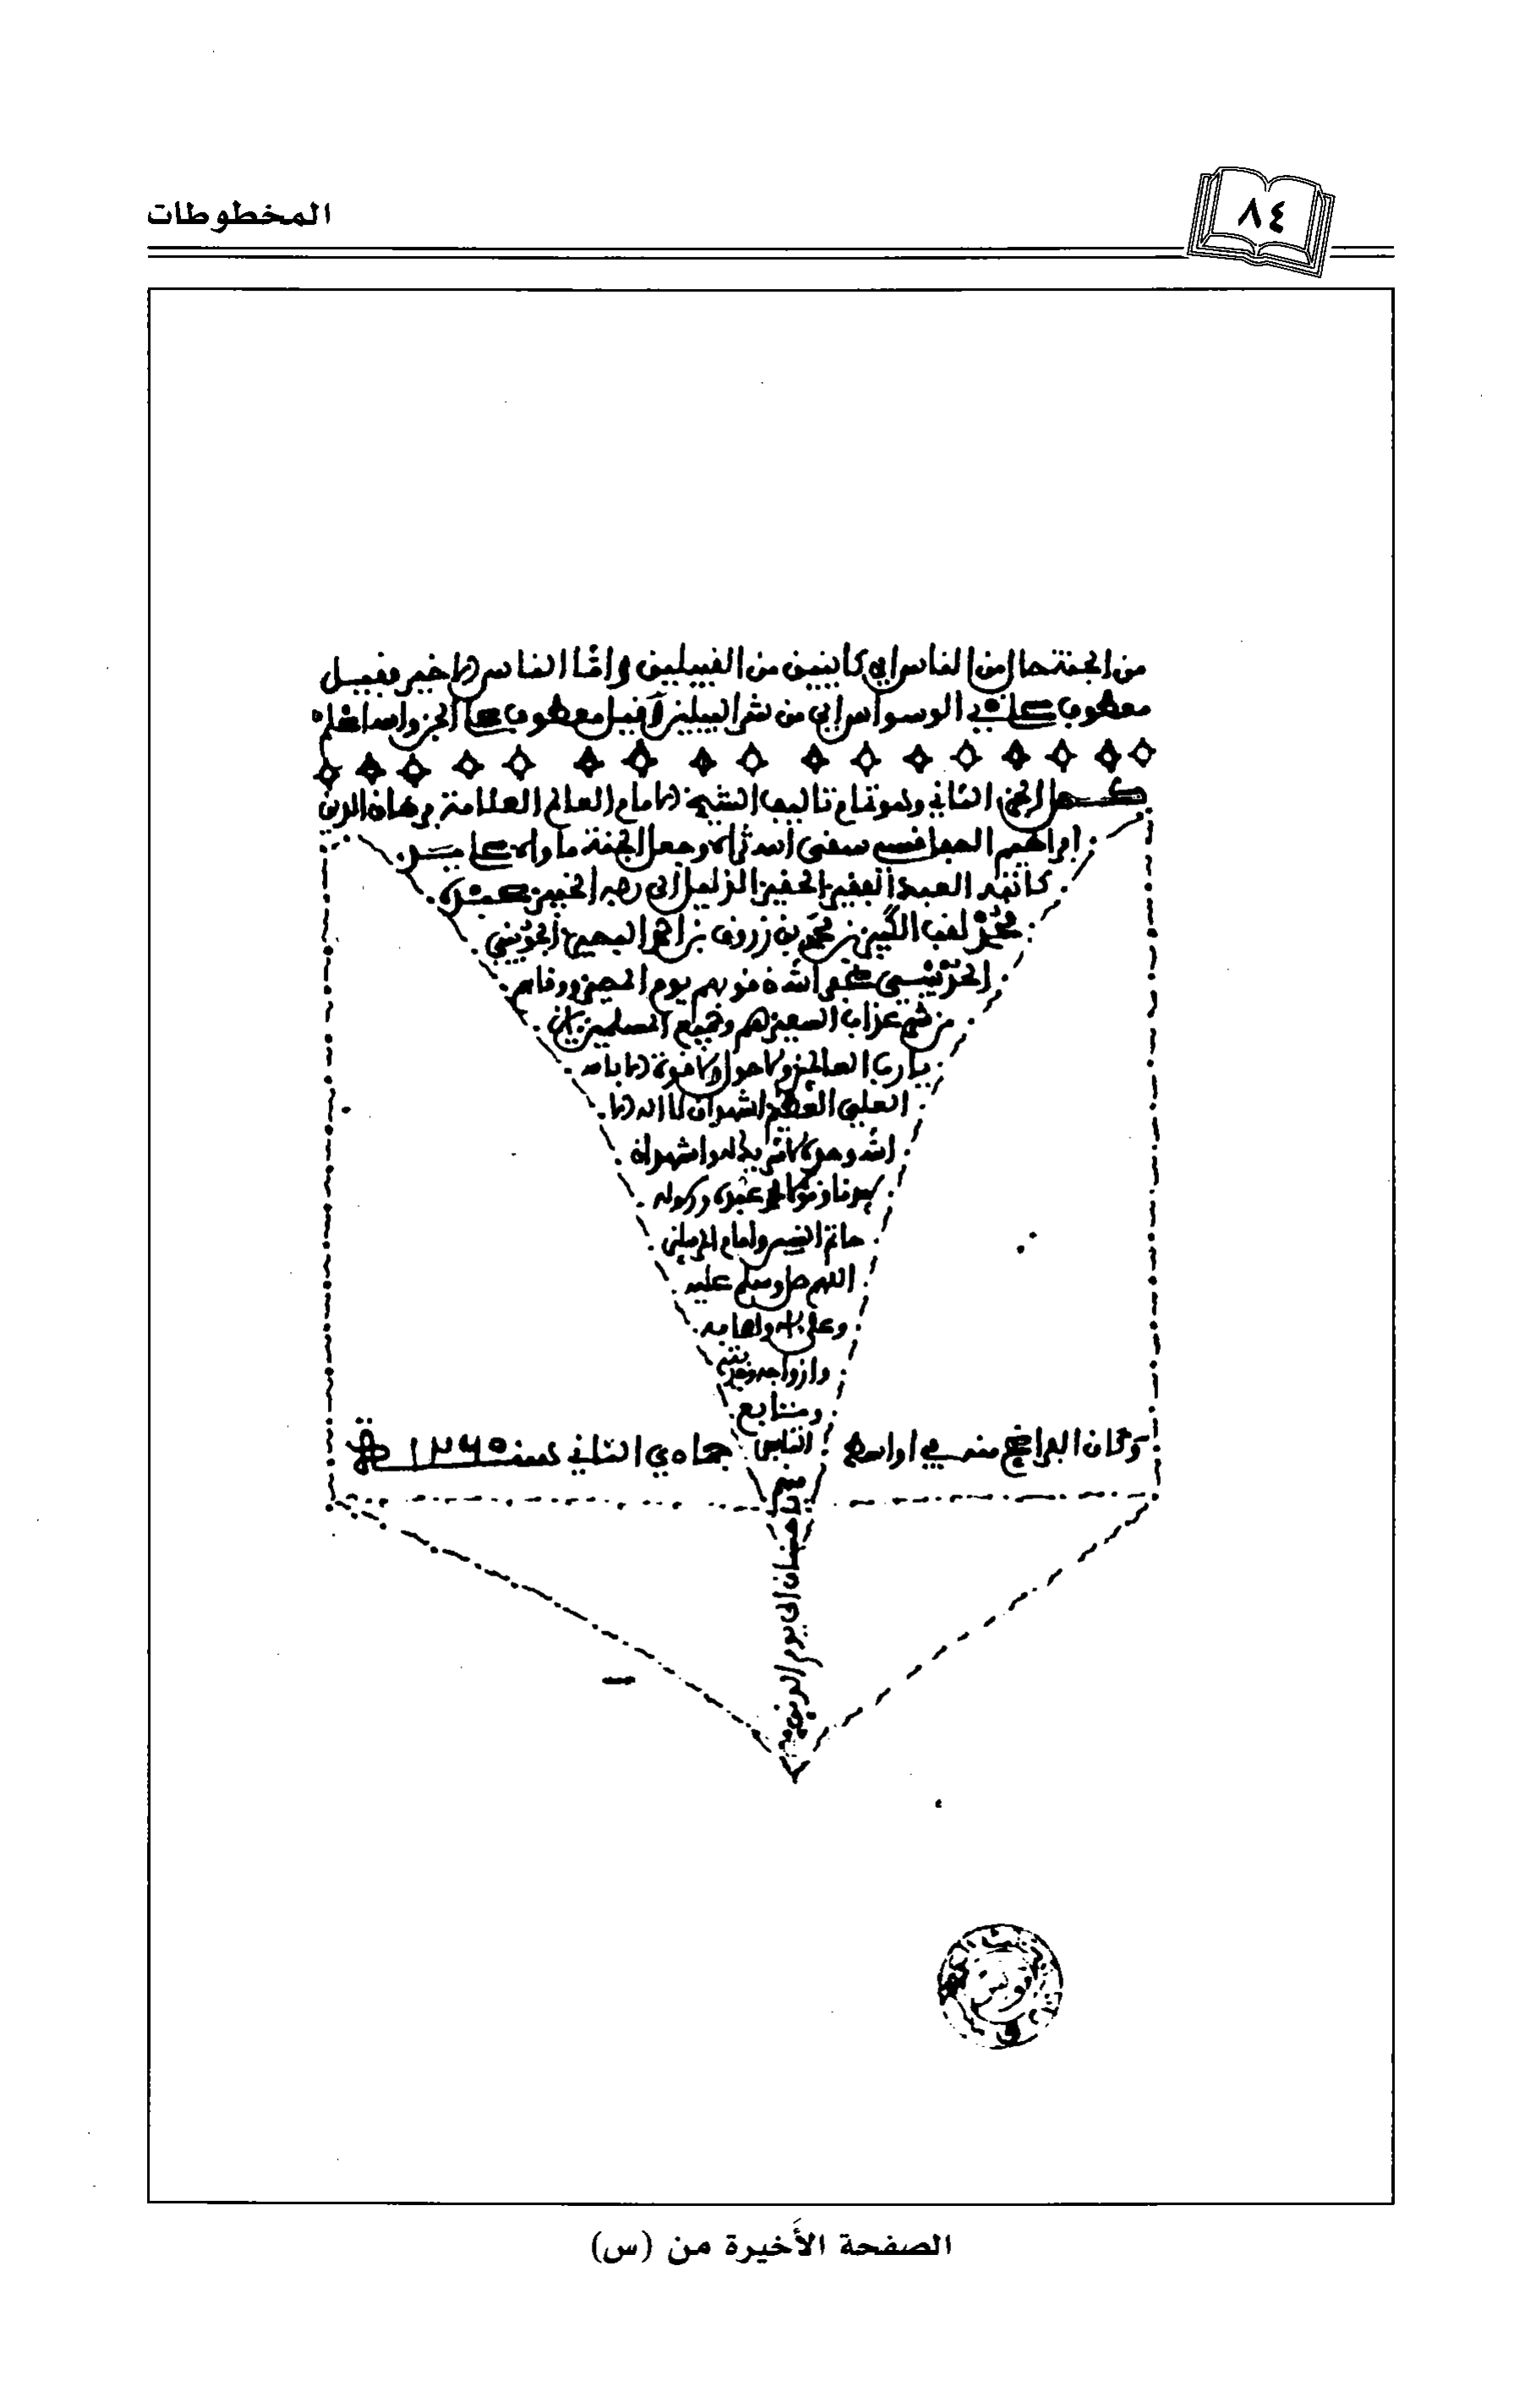 المخطوطات
٨٤
من الجنة حال من الناس اي كاينين من القبيلين واما الناس الاخير فقيل
معطوف على الوسواس اي من شر القبيلين وقيل معطوف على الجن والله اعلم
كمل الجزء الثاني وهو تمام تاليف الشيخ الامام العالم العلامة برهان الدين
ابراهيم الصفاقسي سقى الله ثراه وجعل الجنة ماواه على يد
كاتبه العبد الفقير الحقير الذليل الى ربه الخبير
محمد لقب بن محمد بن زروق بن
الله ذنوبهم يوم المصير ووقاهم
من عذاب السعير هم وجميع المسلمين
يا رب العالمين ولا حول ولا قوة الا بالله
العلي العظيم اشهد ان لا اله الا
الله وحده لا شريك له واشهد ان
سيدنا ومولانا محمد عبده ورسوله
خاتم النبيين وامام المرسلين
اللهم صل وسلم عليه
وعلى اله واصحابه
وازواجه وذريته
ومتابع
التابعين
وكان الفراغ منه في اواسط جمادي الثاني سنة ١٢٦٥
لهم
باحسان الى يوم الدين
الصفحة الأخيرة من (س)